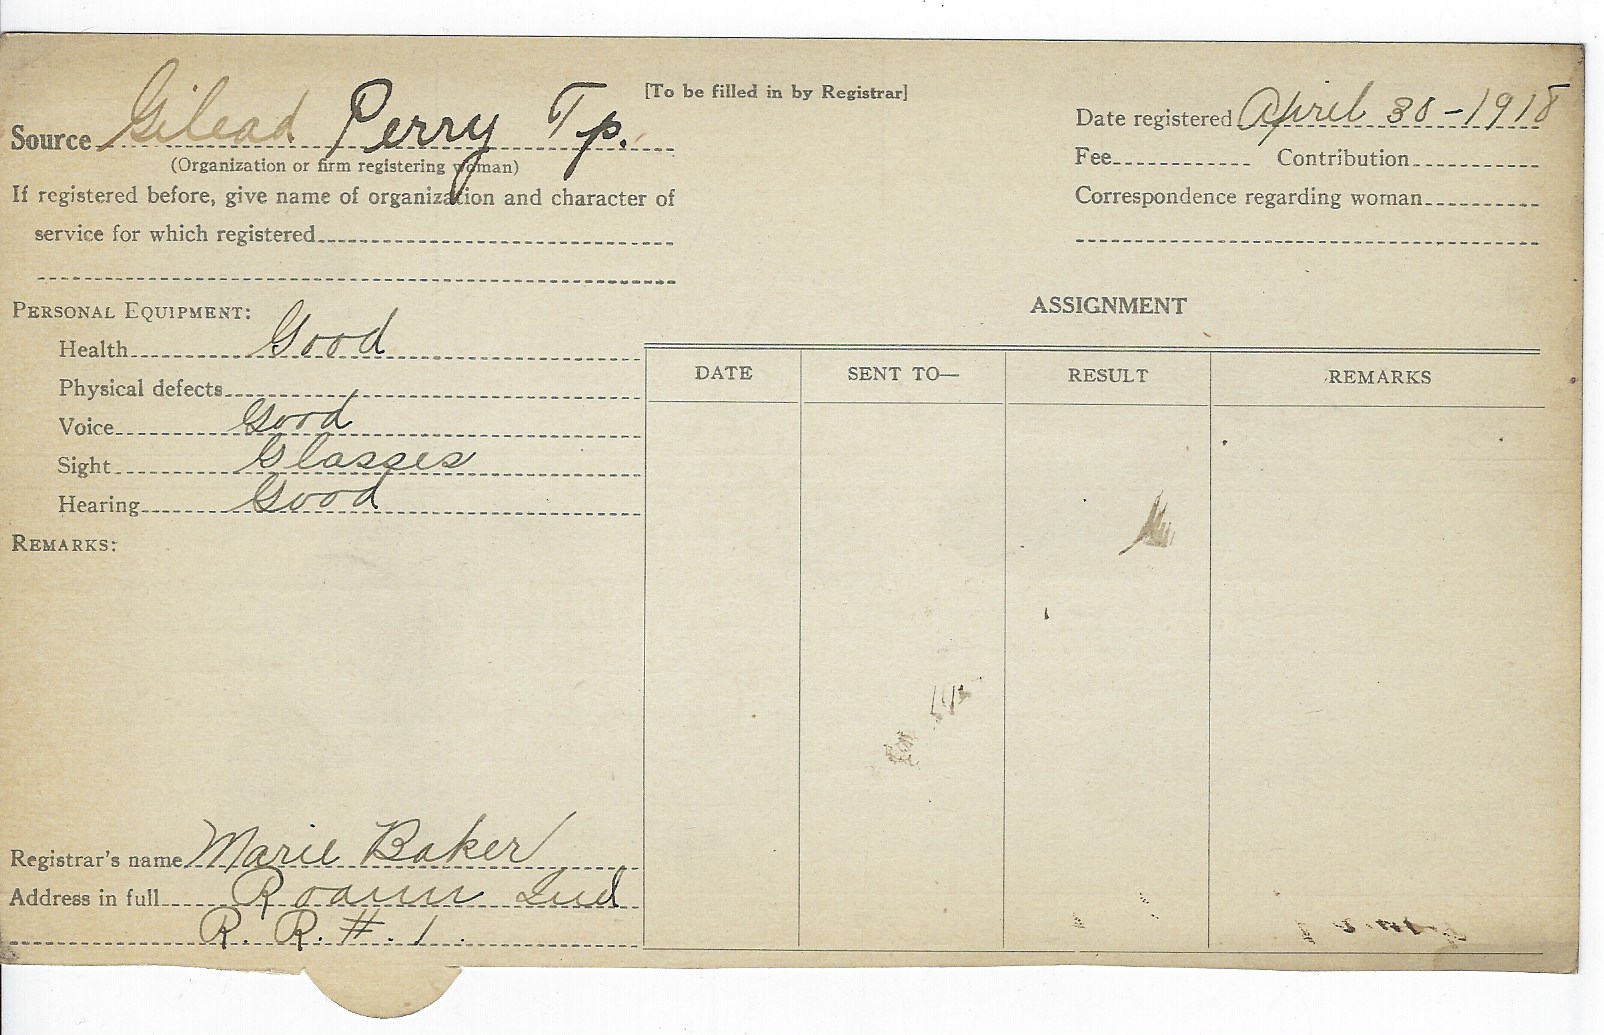 [To be filled in by Registrar]
Source Gilead Perry Tp.
(Organization or firm registering woman)
If registered before, give name of organization and character of
service for which registered
Date registered April 30-1918
Fee Contribution
Correspondence regarding woman
PERSONAL EQUIPMENT:
Health Good
Physical defects
Voice Good
Sight Glasses
Hearing Good
REMARKS:
Registrar's name Marie Baker
Address in full Roann Ind
R. R. #. 1.
ASSIGNMENT
DATE SENT TO— RESULT REMARKS